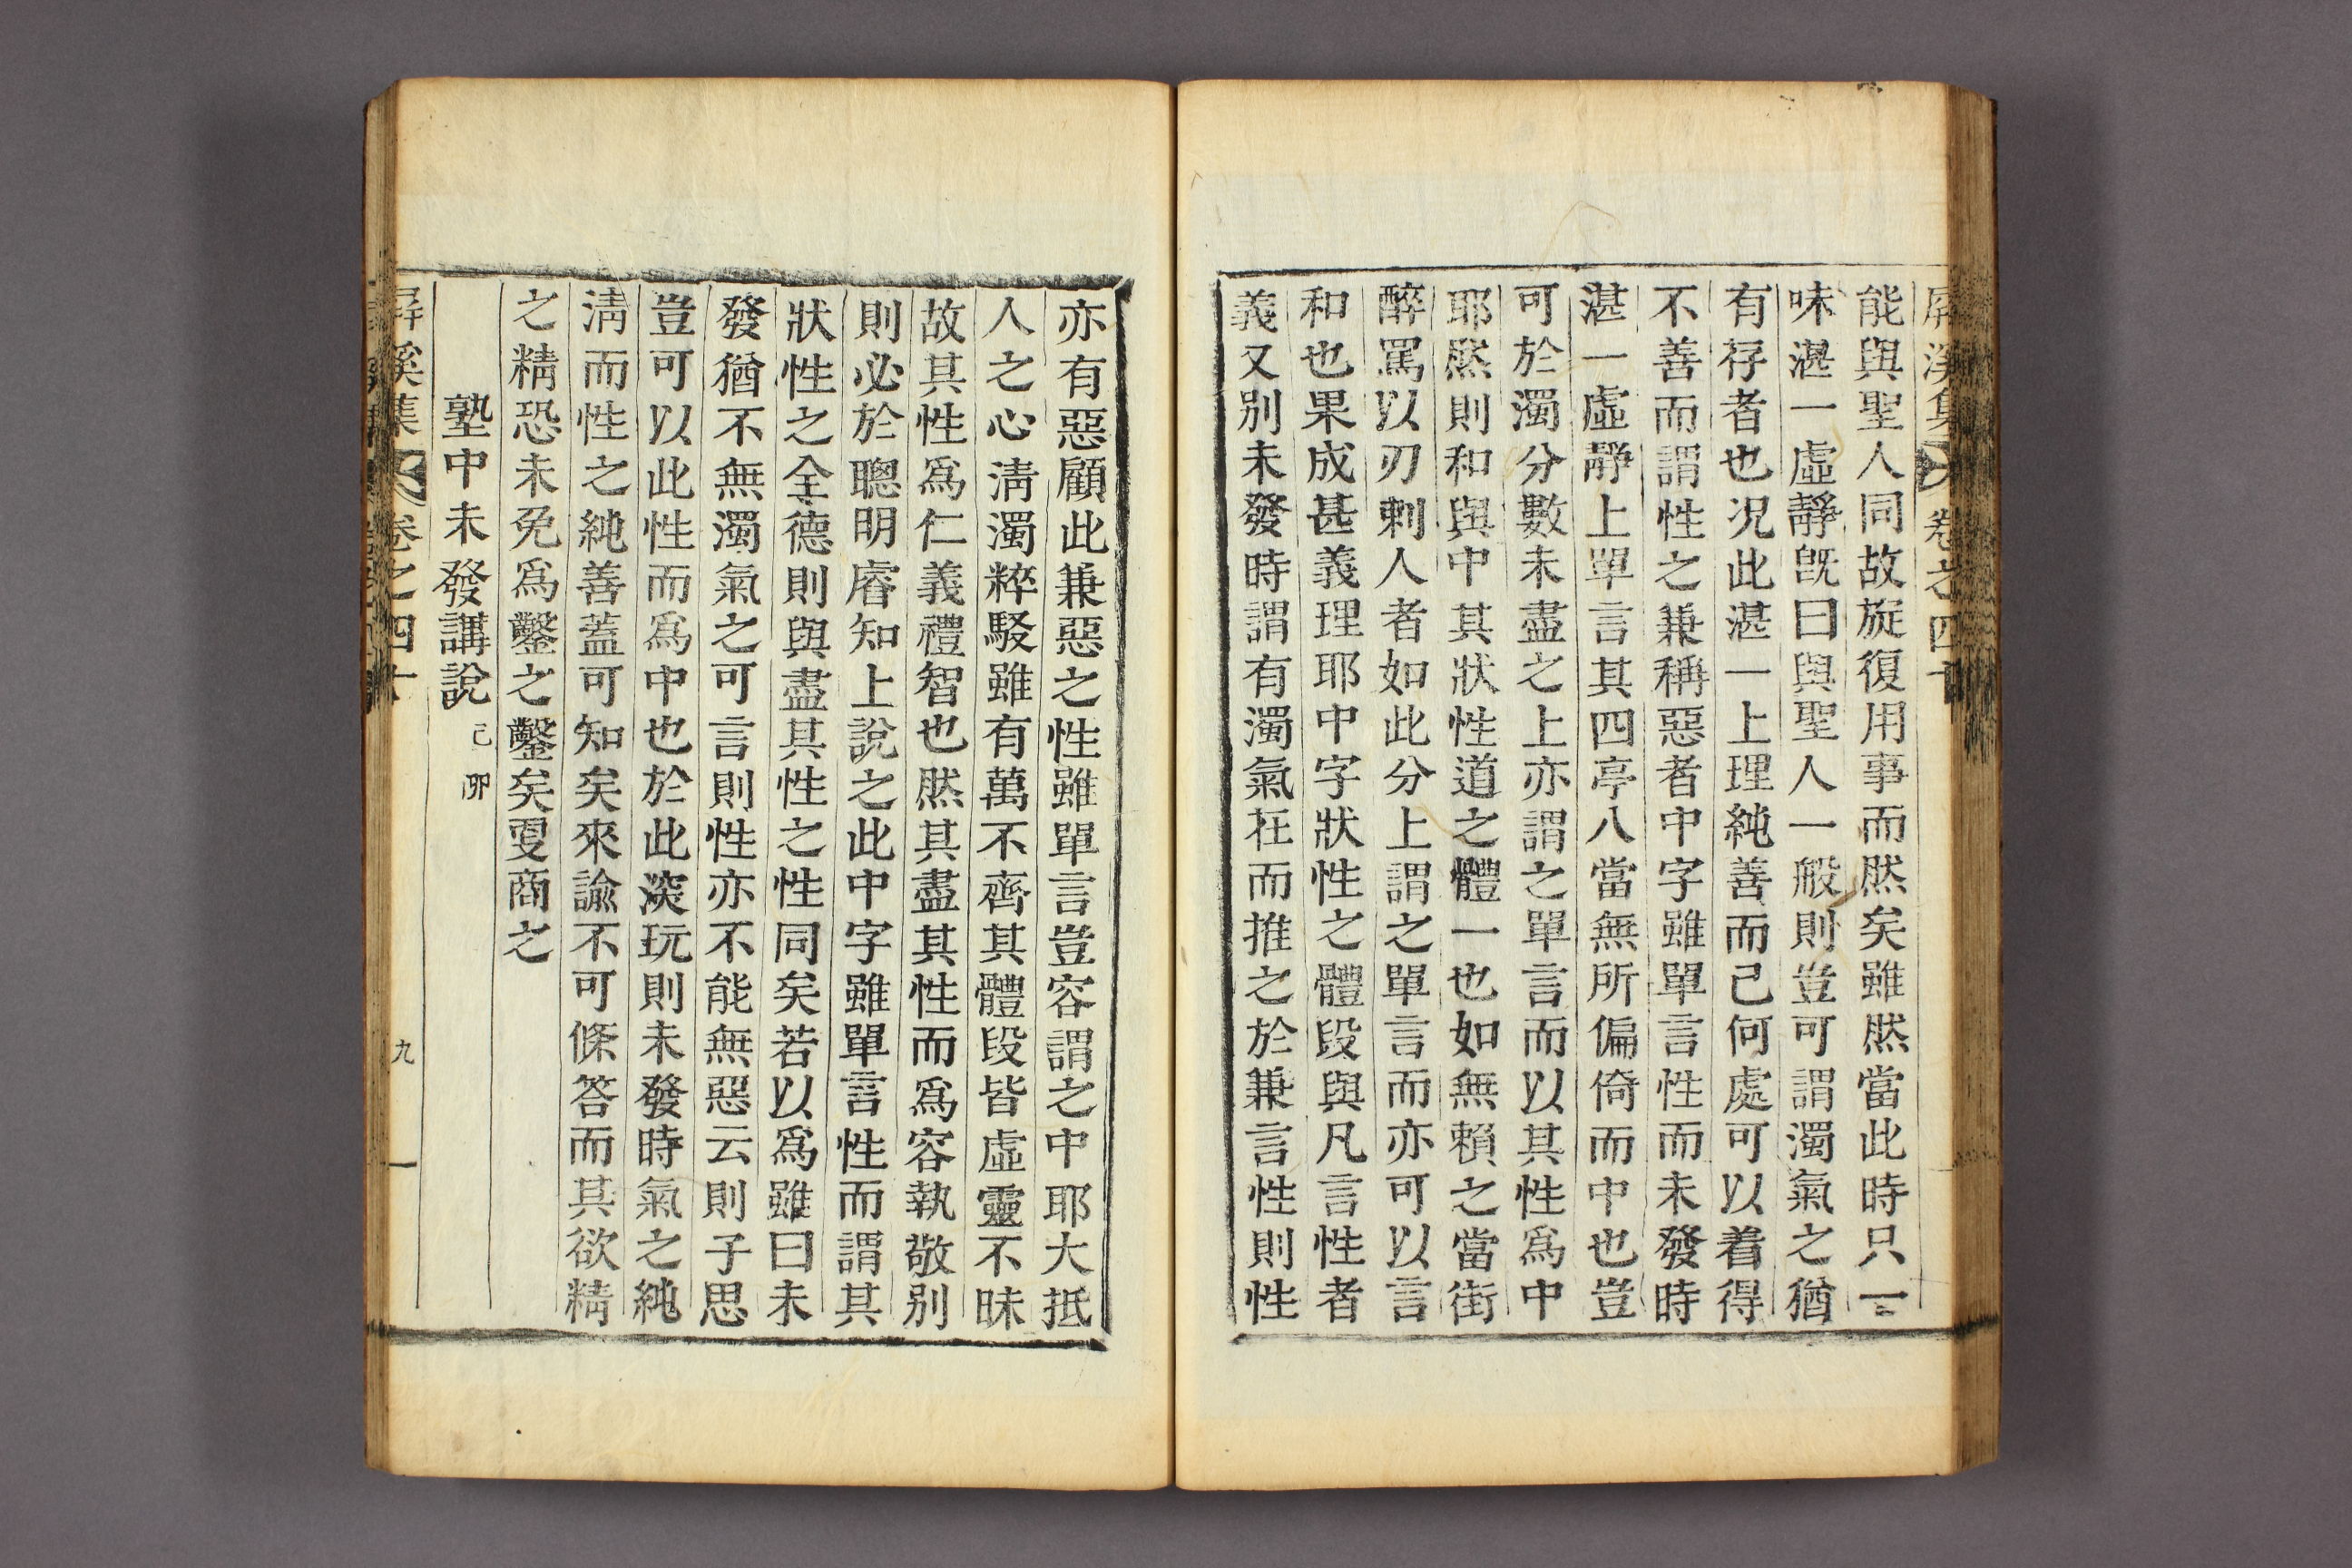 屛溪集 卷之四十
能與聖人同故旋復用事而然矣雖然當此時只一
味湛一虛靜旣曰與聖人一般則豈可謂濁氣之猶
有存者也况此湛一上理純善而已何處可以着得
不善而謂性之兼稱惡者中字雖單言性而未發時
湛一虛靜上單言其四亭八當無所偏倚而中也豈
可於濁分數未盡之上亦謂之單言而以其性爲中
耶然則和與中其狀性道之體一也如無賴之當街
醉罵以刃刺人者如此分上謂之單言而亦可以言
和也果成甚義理耶中字狀性之體段與凡言性者
義又別未發時謂有濁氣在而推之於兼言性則性
亦有惡顧此兼惡之性雖單言豈容謂之中耶大抵
人之心淸濁粹駁雖有萬不齊其體段皆虛靈不昧
故其性爲仁義禮智也然其盡其性而爲容執敬別
則必於聰明睿知上說之此中字雖單言性而謂其
狀性之全德則與盡其性之性同矣若以爲雖曰未
發猶不無濁氣之可言則性亦不能無惡云則子思
豈可以此性而爲中也於此深玩則未發時氣之純
淸而性之純善蓋可知矣來諭不可條答而其欲精
之精恐未免爲鑿之鑿矣更商之
塾中未發講說 己卯
屛溪集 卷之四十 九